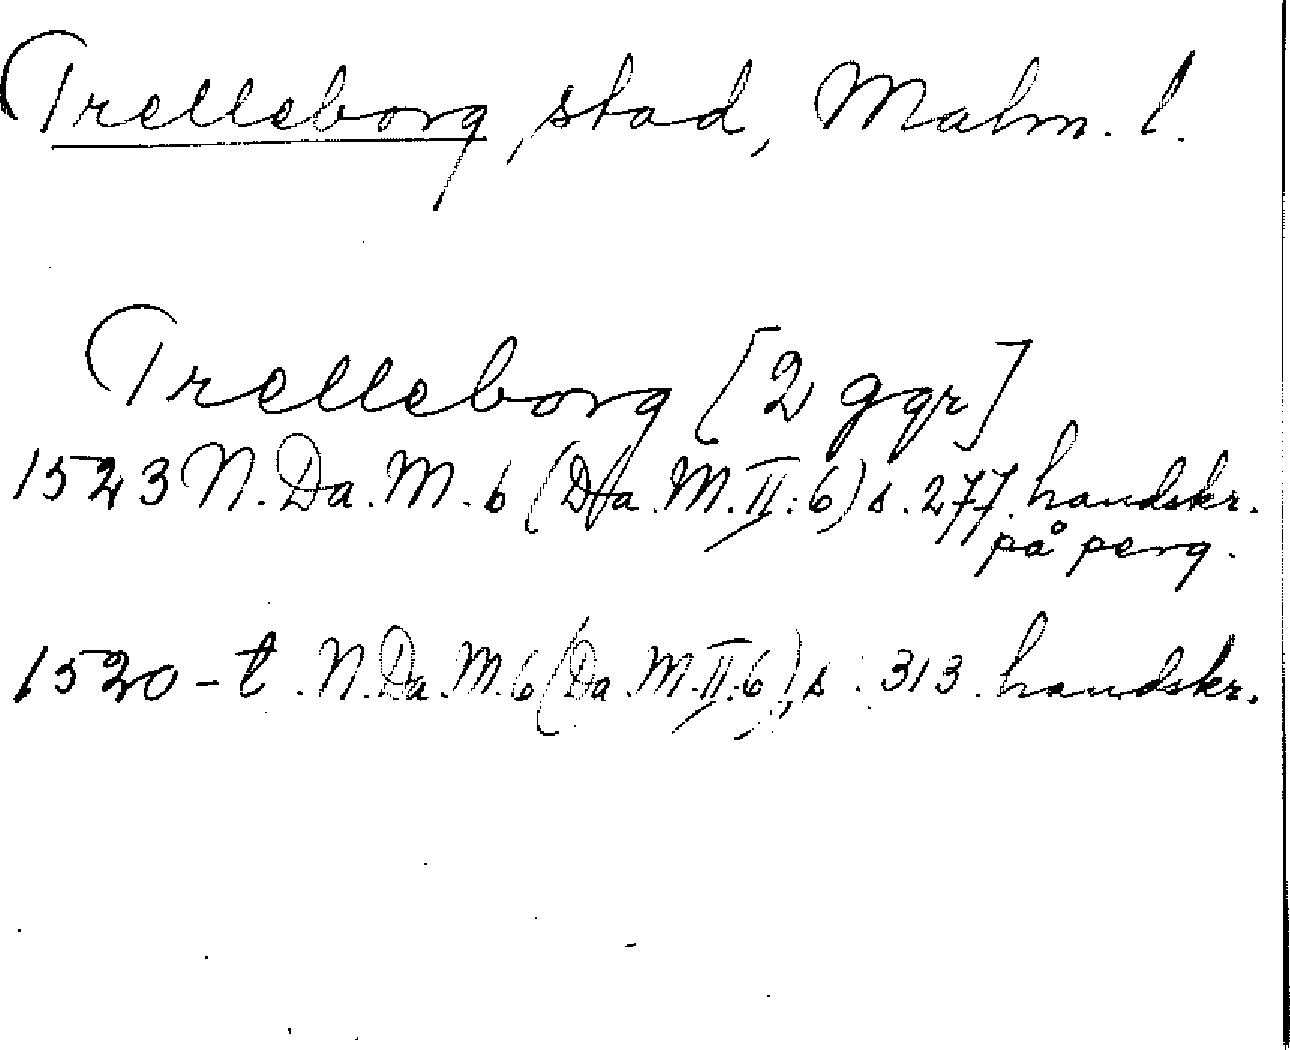 Trelleborg, stad, Malm. l.
Trelleborg [2 ggr]
1523 N. Da. M. 6 (Da. M. II: 6) s. 277. handskr.
på perg.
1520-t. N. Da. M. 6 (Da. M. II: 6), s. 313. handskr.